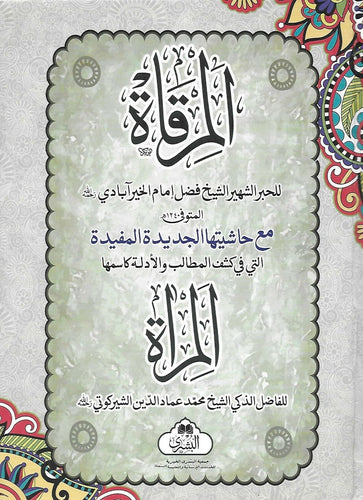 المرقاة
للحبر الشهير الشيخ فضل إمام الخيرآبادي رحمه الله
المتوفى ١٢٤٠هـ
مع حاشيتها الجديدة المفيدة
التي في كشف المطالب والأدلة كاسمها
المرآة
للفاضل الذكي الشيخ محمد عماد الدين الشيركوتي رحمه الله
البشرى
جمعية البشرى الخيرية